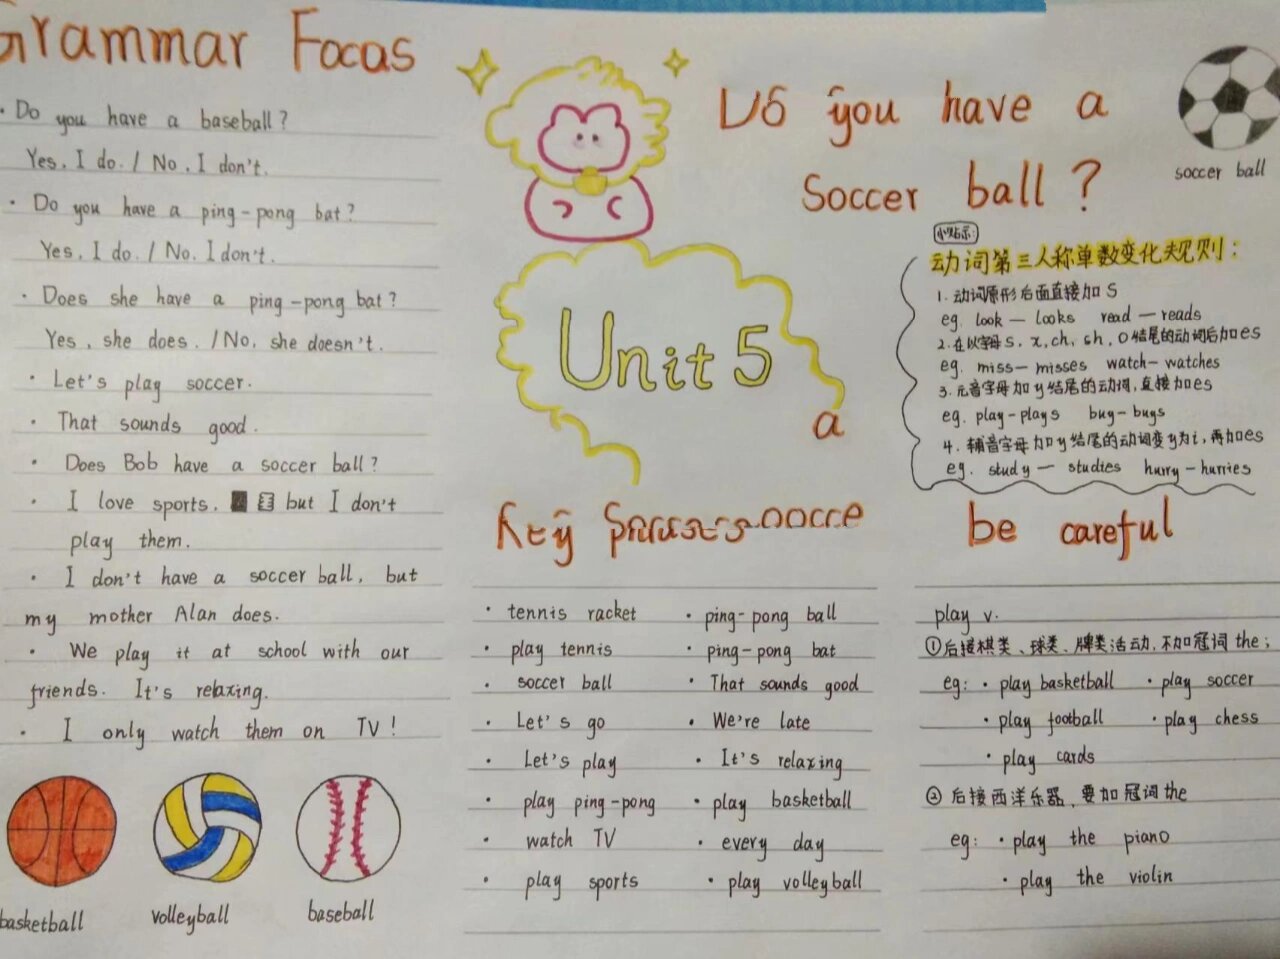 Grammar Focas
· Do you have a baseball?
Yes, I do. / No, I don't.
· Do you have a ping-pong bat?
Yes, I do. / No, I don't.
· Does she have a ping-pong bat?
Yes, she does. / No, she doesn't.
· Let's play soccer.
· That sounds good.
· Does Bob have a soccer ball?
· I love sports, but I don't
play them.
· I don't have a soccer ball, but
my mother Alan does.
· We play it at school with our
friends. It's relaxing.
· I only watch them on TV!
basketball
volleyball
baseball
you have a
soccer ball?
soccer ball
Unit 5
a
小贴示:
动词第三人称单数变化规则:
1. 动词原形后面直接加s
eg. look — looks read — reads
2. 在以字母s, x, ch, sh, o结尾的动词后加es
eg. miss — misses watch — watches
3. 元音字母加y结尾的动词,直接加es
eg. play - plays buy - buys
4. 辅音字母加y结尾的动词变y为i,再加es
eg. study — studies hurry - hurries
Key
· tennis racket
· play tennis
· soccer ball
· Let's go
· Let's play
· play ping-pong
· watch TV
· play sports
· ping-pong ball
· ping-pong bat
· That sounds good
· We're late
· It's relaxing
· play basketball
· every day
· play volleyball
be careful
play v.
①后接棋类、球类、牌类活动,不加冠词 the;
eg: · play basketball · play soccer
· play football · play chess
· play cards
② 后接西洋乐器,要加冠词 the
eg: · play the piano
· play the violin